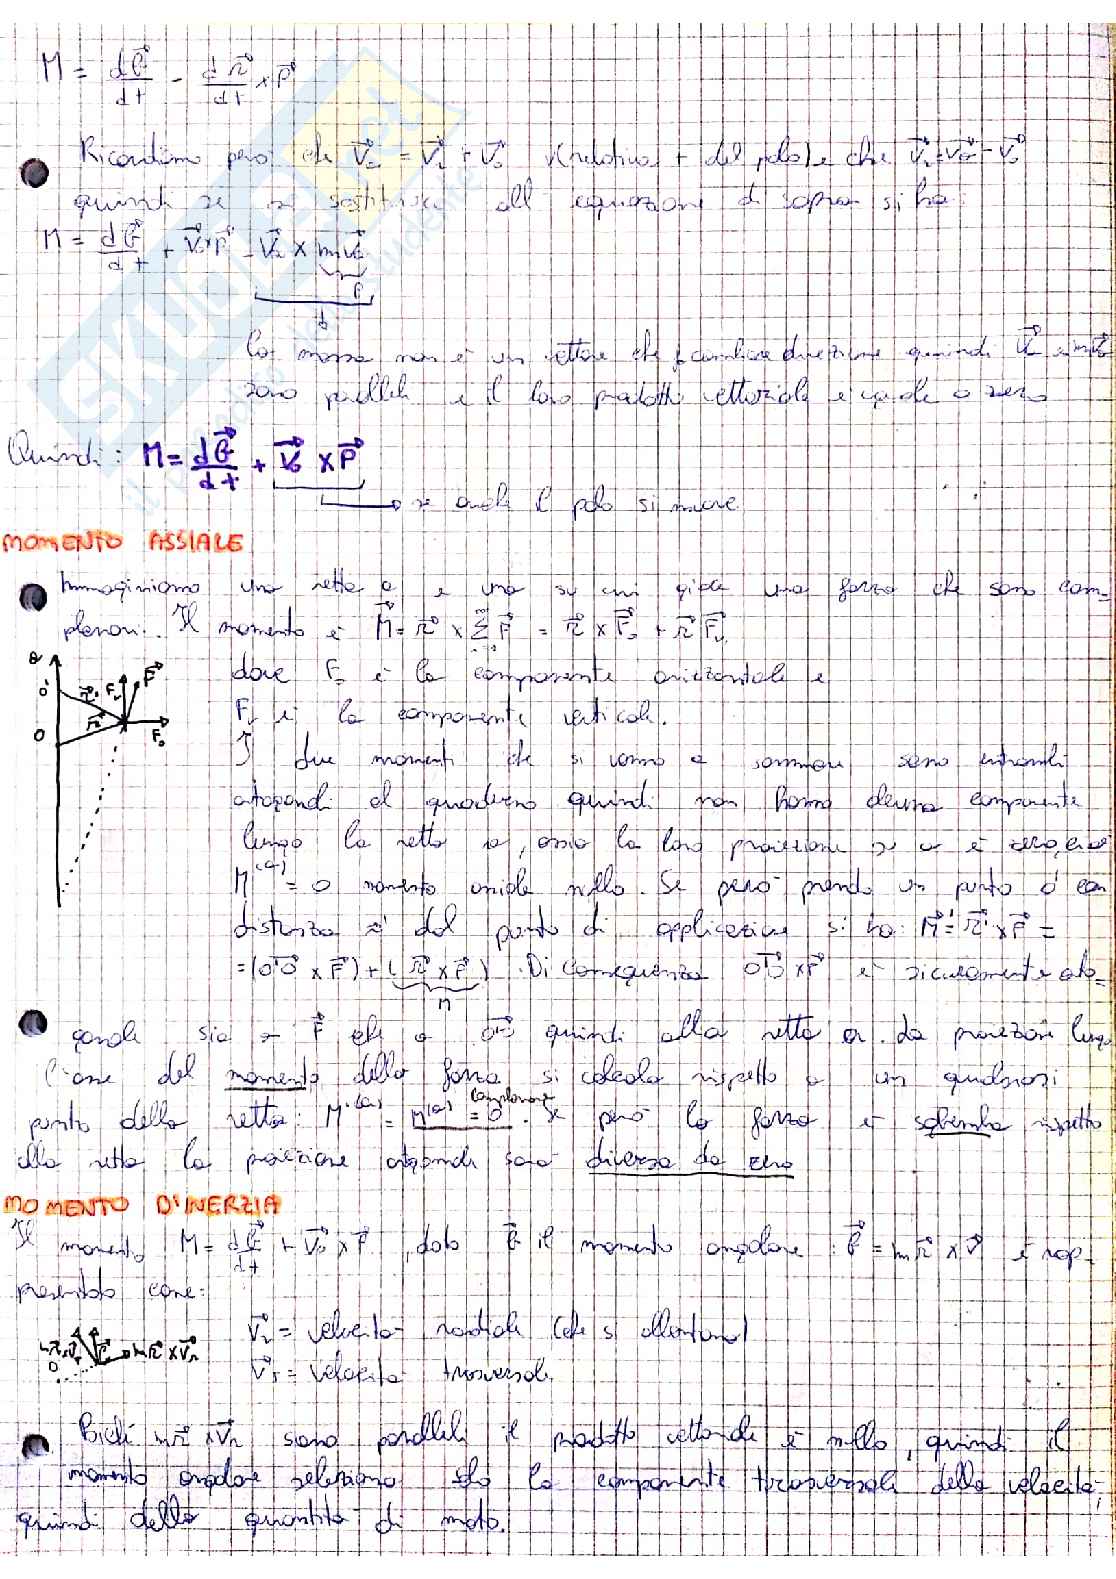 M = d𝓁⃗/dt - dr⃗/dt × p⃗
Ricordiamo però che V⃗a = V⃗r + V⃗o v(relativa + del polo) e che V⃗r = V⃗a - V⃗o
quindi se si sostituisce all' equazione di sopra si ha:
M = d𝓁⃗/dt + V⃗o × p⃗ - V⃗a × mV⃗a
p
La massa non è un vettore che fa cambiare direzione quindi
sono paralleli e il loro prodotto vettoriale è uguale a zero
Quindi: M = d𝓁⃗/dt + V⃗o × P⃗
se anche il polo si muove
MOMENTO ASSIALE
Immaginiamo una retta a e una su cui giace una forza che sono com-
planari. Il momento è M⃗ = r⃗ × Σ F⃗ = r⃗ × F⃗o + r⃗ F⃗v
dove Fo è la componente orizzontale e
Fv è la componente verticale.
I due momenti che si vanno a sommare sono entrambi
ortogonali al quaderno quindi non hanno alcuna componente
lungo la retta a, ossia la loro proiezione su a è zero,
M(a) = 0 momento assiale nullo. Se però prendo un punto o' con
distanza r' dal punto di applicazione si ha: M⃗' = r⃗' × F⃗ =
= (o'o × F⃗) + (r⃗ × F⃗). Di conseguenza o'o × F è sicuramente orto-
M
gonale sia a F⃗ che a o'o quindi alla retta a. La proiezione lungo
l'asse del momento della forza si calcola rispetto a un qualsiasi
complanare
punto della retta: M'(a) = M(a) = 0. Se però la forza è sghemba rispetto
alla retta la proiezione ortogonale sarà diversa da zero
a
o' r⃗' Fv F⃗
r⃗
O Fo
MOMENTO D'INERZIA
Il momento M = d𝓁⃗/dt + V⃗o × P, dato 𝓁⃗ il momento angolare: 𝓁⃗ = mr⃗ × V⃗ è rap-
presentato come:
V⃗r = velocità radiale (che si allontana)
V⃗t = velocità trasversale.
mr⃗ × V⃗r
O
Poiché mr⃗ × V⃗r siano paralleli il prodotto vettoriale è nullo, quindi il
momento angolare seleziona solo la componente trasversale della velocità,
quindi della quantità di moto.
SKUOLA.net
il